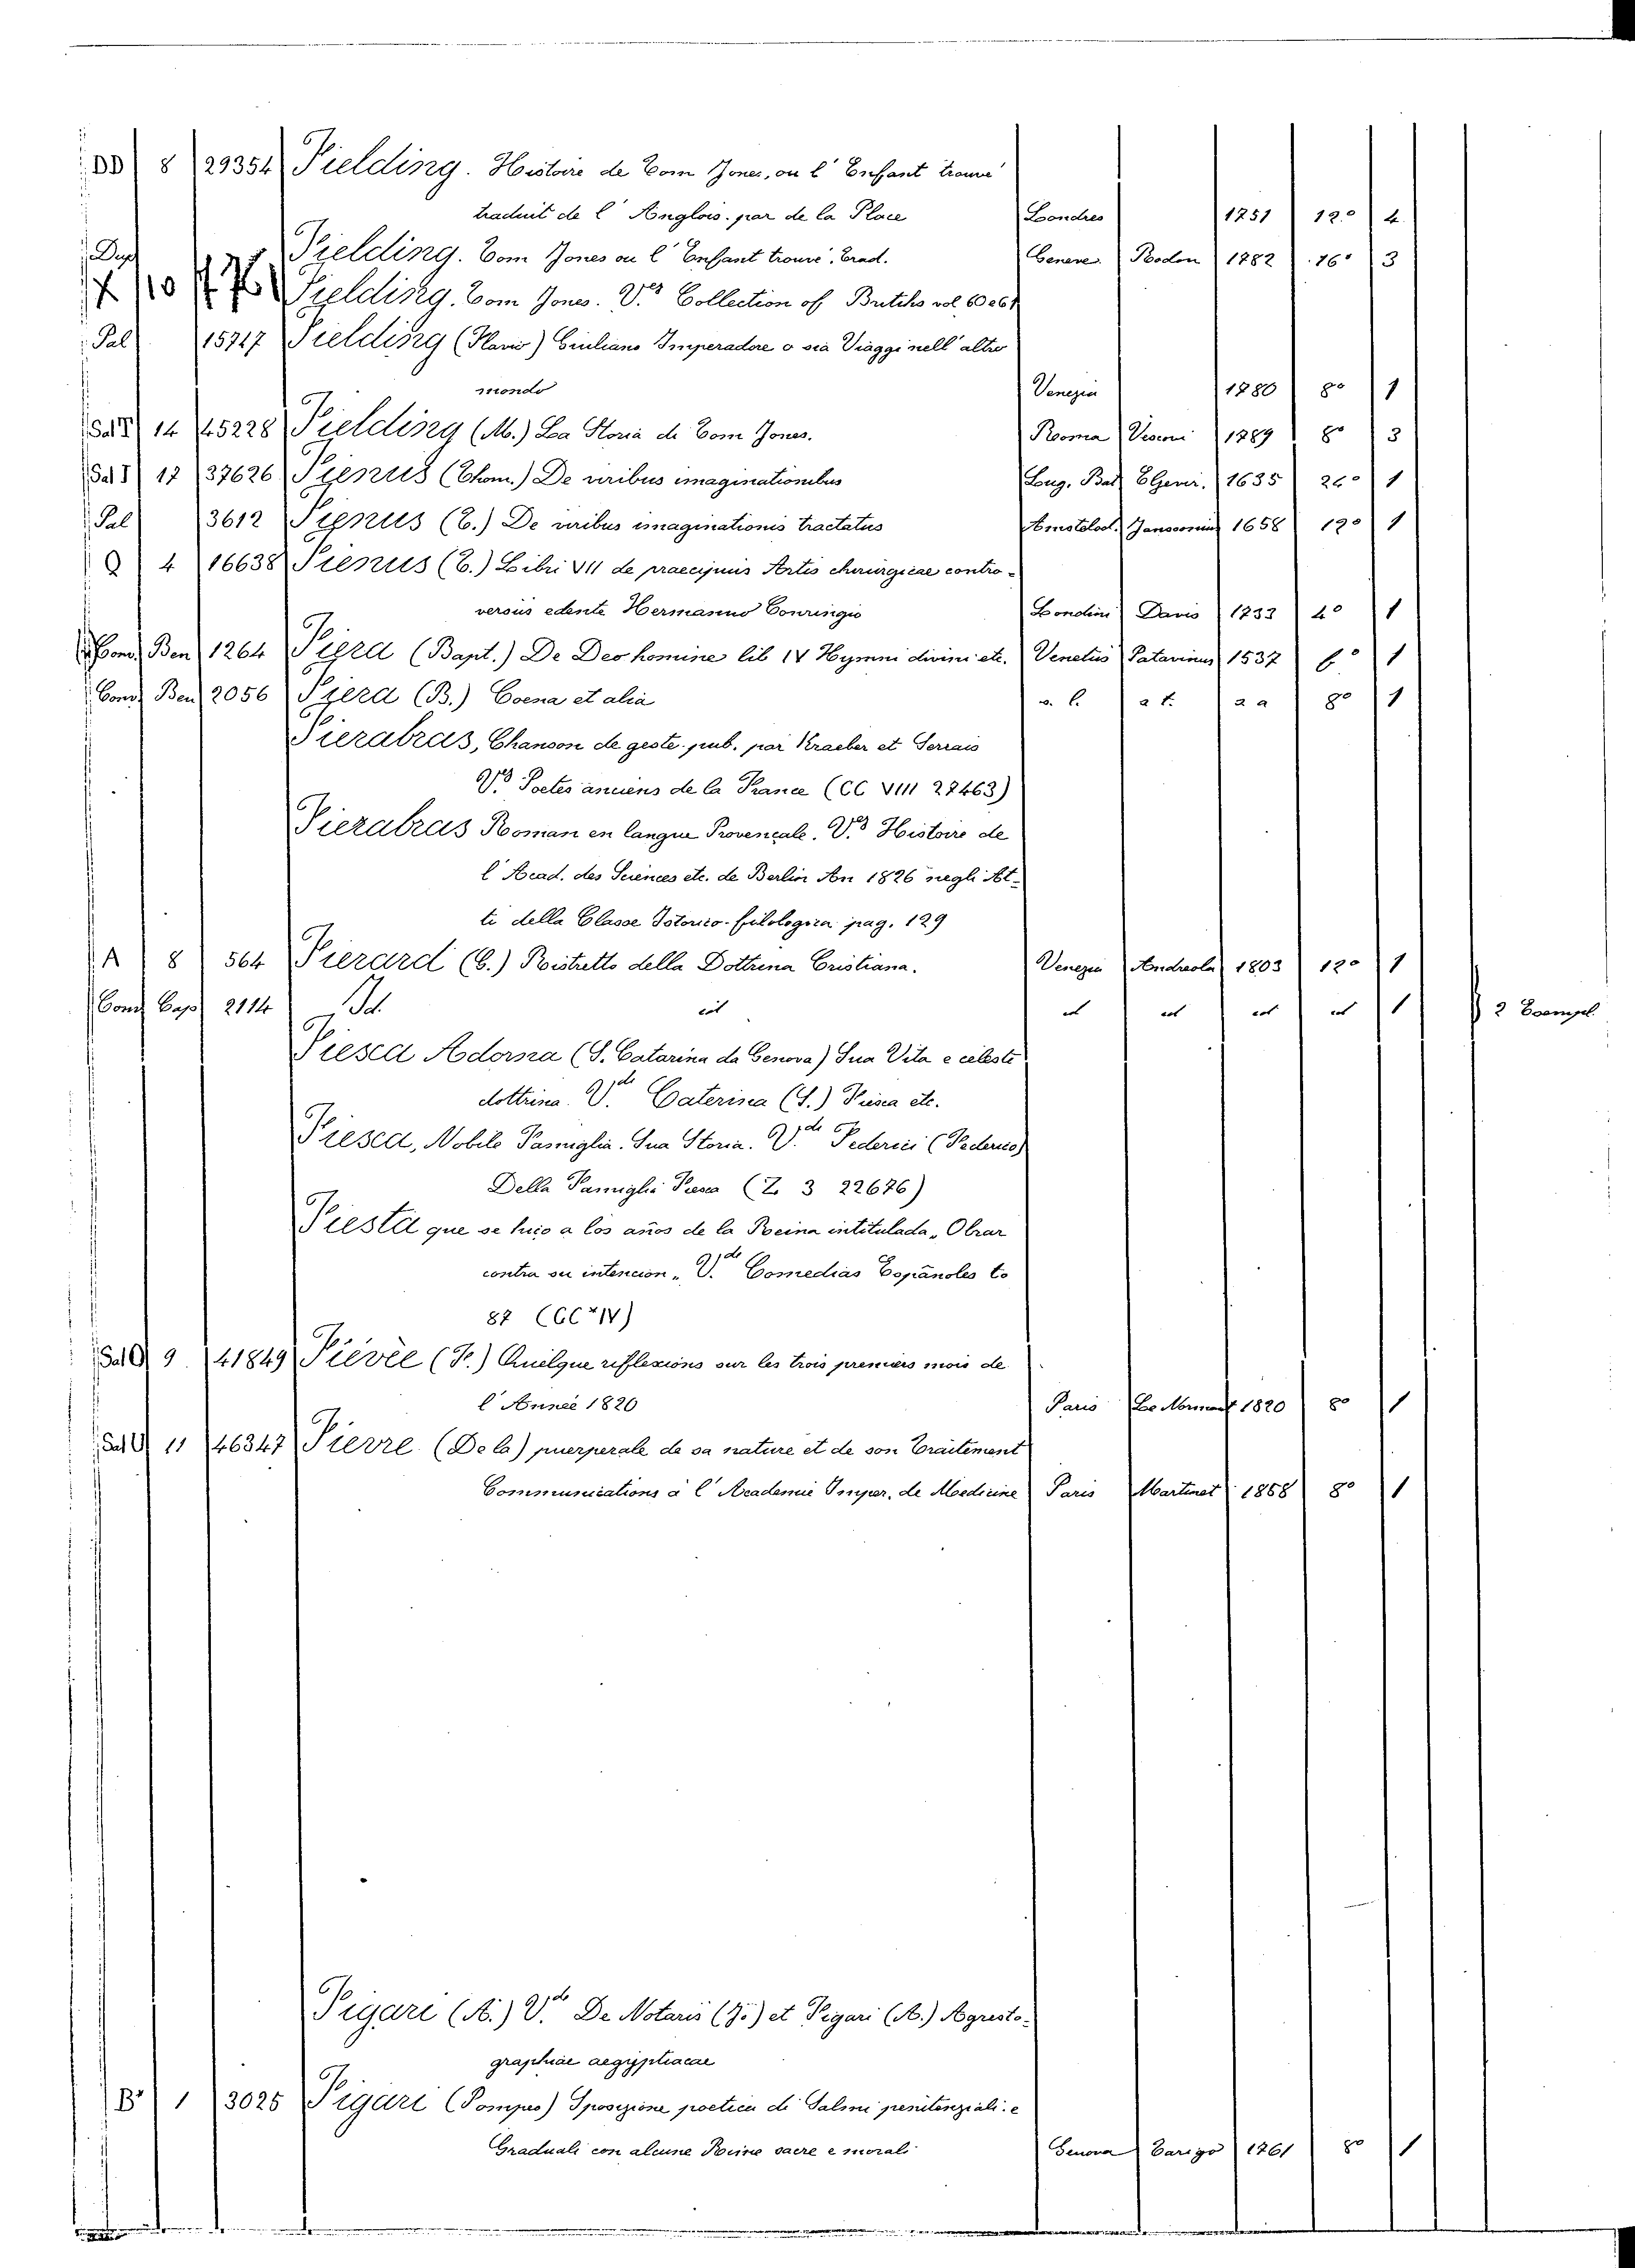 DD 8 29354 Fielding. Histoire de Tom Jones, ou l'Enfant trouvé
traduit de l'Anglois par de la Place Londres 1751 12.° 4
Dep Fielding. Tom Jones ou l'Enfant trouvé. Trad. Geneve Bodon 1782 16° 3
Fielding. Tom Jones. V.es Collection of Brutihs vol 60 e 61
Pal 15717 Fielding (Flavio) Giuliano Imperadore o sia Viaggi nell'altro
mondo Venezia 1780 8° 1
14 45228 Fielding (M.) La Storia di Tom Jones. Roma 1789 8° 3
17 37626 Fienus (Thom.) De viribus imaginationibus Lug. Bat Elzevir. 1635 24° 1
Pal 3612 Fienus (T.) De viribus imaginationis tractatus Amstelod. Janssonius 1658 12° 1
Q 4 16638 Fienus (T.) Libri VII de praecipuis Artis chirurgicae contro-
versiis edente Hermanno Conringio Londini Davis 1733 4° 1
Cons Ben 1264 Fiera (Bapt.) De Deo homine lib IV Hymni divini etc. Venetiis Patavinus 1537 6° 1
Cons Ben 2056 Fiera (B.) Coena et alia s. l. s t. a a 8° 1
Fierabras, Chanson de geste. pub. par Kraeber et Servais
V.es Poetes anciens de la France (CC VIII 27463)
Fierabras Roman en langue Provençale. V.es Histoire de
l'Acad. des Sciences etc. de Berlin An 1826 negli At-
ti della Classe Istorico-filologica pag. 129
A 8 564 Fierard (C.) Ristretto della Dottrina Cristiana. Venezia Andreola 1803 12° 1
Cons Cap 2114 Id. cit cit cit cit cit 1 2 Esempl.
Fiesca Adorna (S. Catarina da Genova) Sua Vita e celeste
dottrina. V.de Caterina (S.) Fiesca etc.
Fiesca, Nobile Famiglia. Sua Storia. V.de Federici (Federico)
Della Famiglia Fiesca (Z 3 22676)
Fiesta que se hizo a los años de la Reina intitulada „Obrar
contra su intencion„ V.de Comedias Españoles to
87 (CC*IV)
Sal Q 9 41849 Fievèe (F.) Quelque reflexions sur les trois premiers mois de
l'Année 1820 Paris Le Normant 1820 8° 1
11 46347 Fievre (De la) puerperale de sa nature et de son Traitement
Communications à l'Academie Imper. de Medicine Paris Martinet 1858 8° 1
Figari (A.) V.de De Notaris (J.) et Figari (A.) Agrosto-
graphiae aegyptiacae
1 3025 Figari (Pompeo) Sposizione poetica di Salmi penitenziali e
Graduali con alcune Rime sacre e morali Genova Tarigo 1761 8° 1